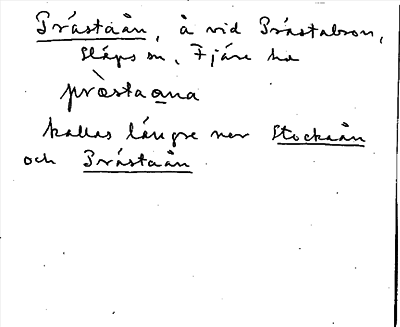 Prästaån, å vid Prästabron,
Släps sn, Fjäre hd
præ̀staa̲na
kallas längre ner Stockaån
och Prästaån